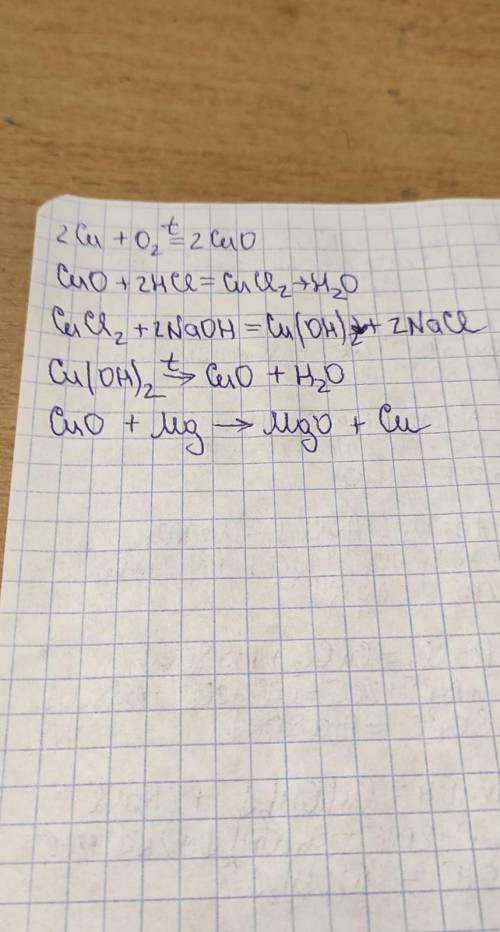 2Cu + O₂ =ᵗ 2CuO
CuO + 2HCl = CuCl₂ + H₂O
CuCl₂ + 2NaOH = Cu(OH)₂ + 2NaCl
Cu(OH)₂ →ᵗ CuO + H₂O
CuO + Mg → MgO + Cu